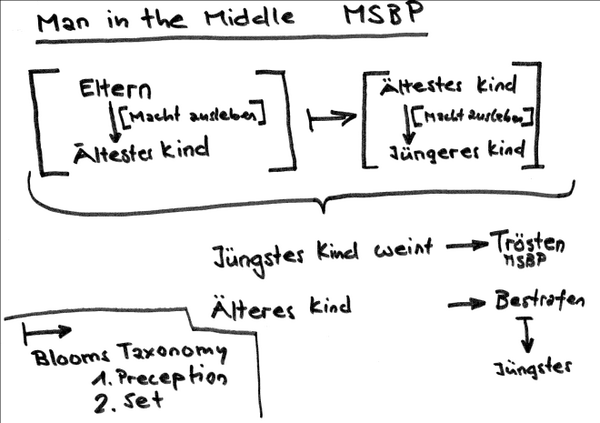 Man in the Middle MSBP
Eltern
[Macht ausleben]
Ältestes Kind
Ältestes Kind
[Macht ausleben]
Jüngeres Kind
Jüngstes Kind weint → Trösten
MSBP
Älteres Kind → Bestrafen
Jüngstes
Blooms Taxonomy
1. Preception
2. Set